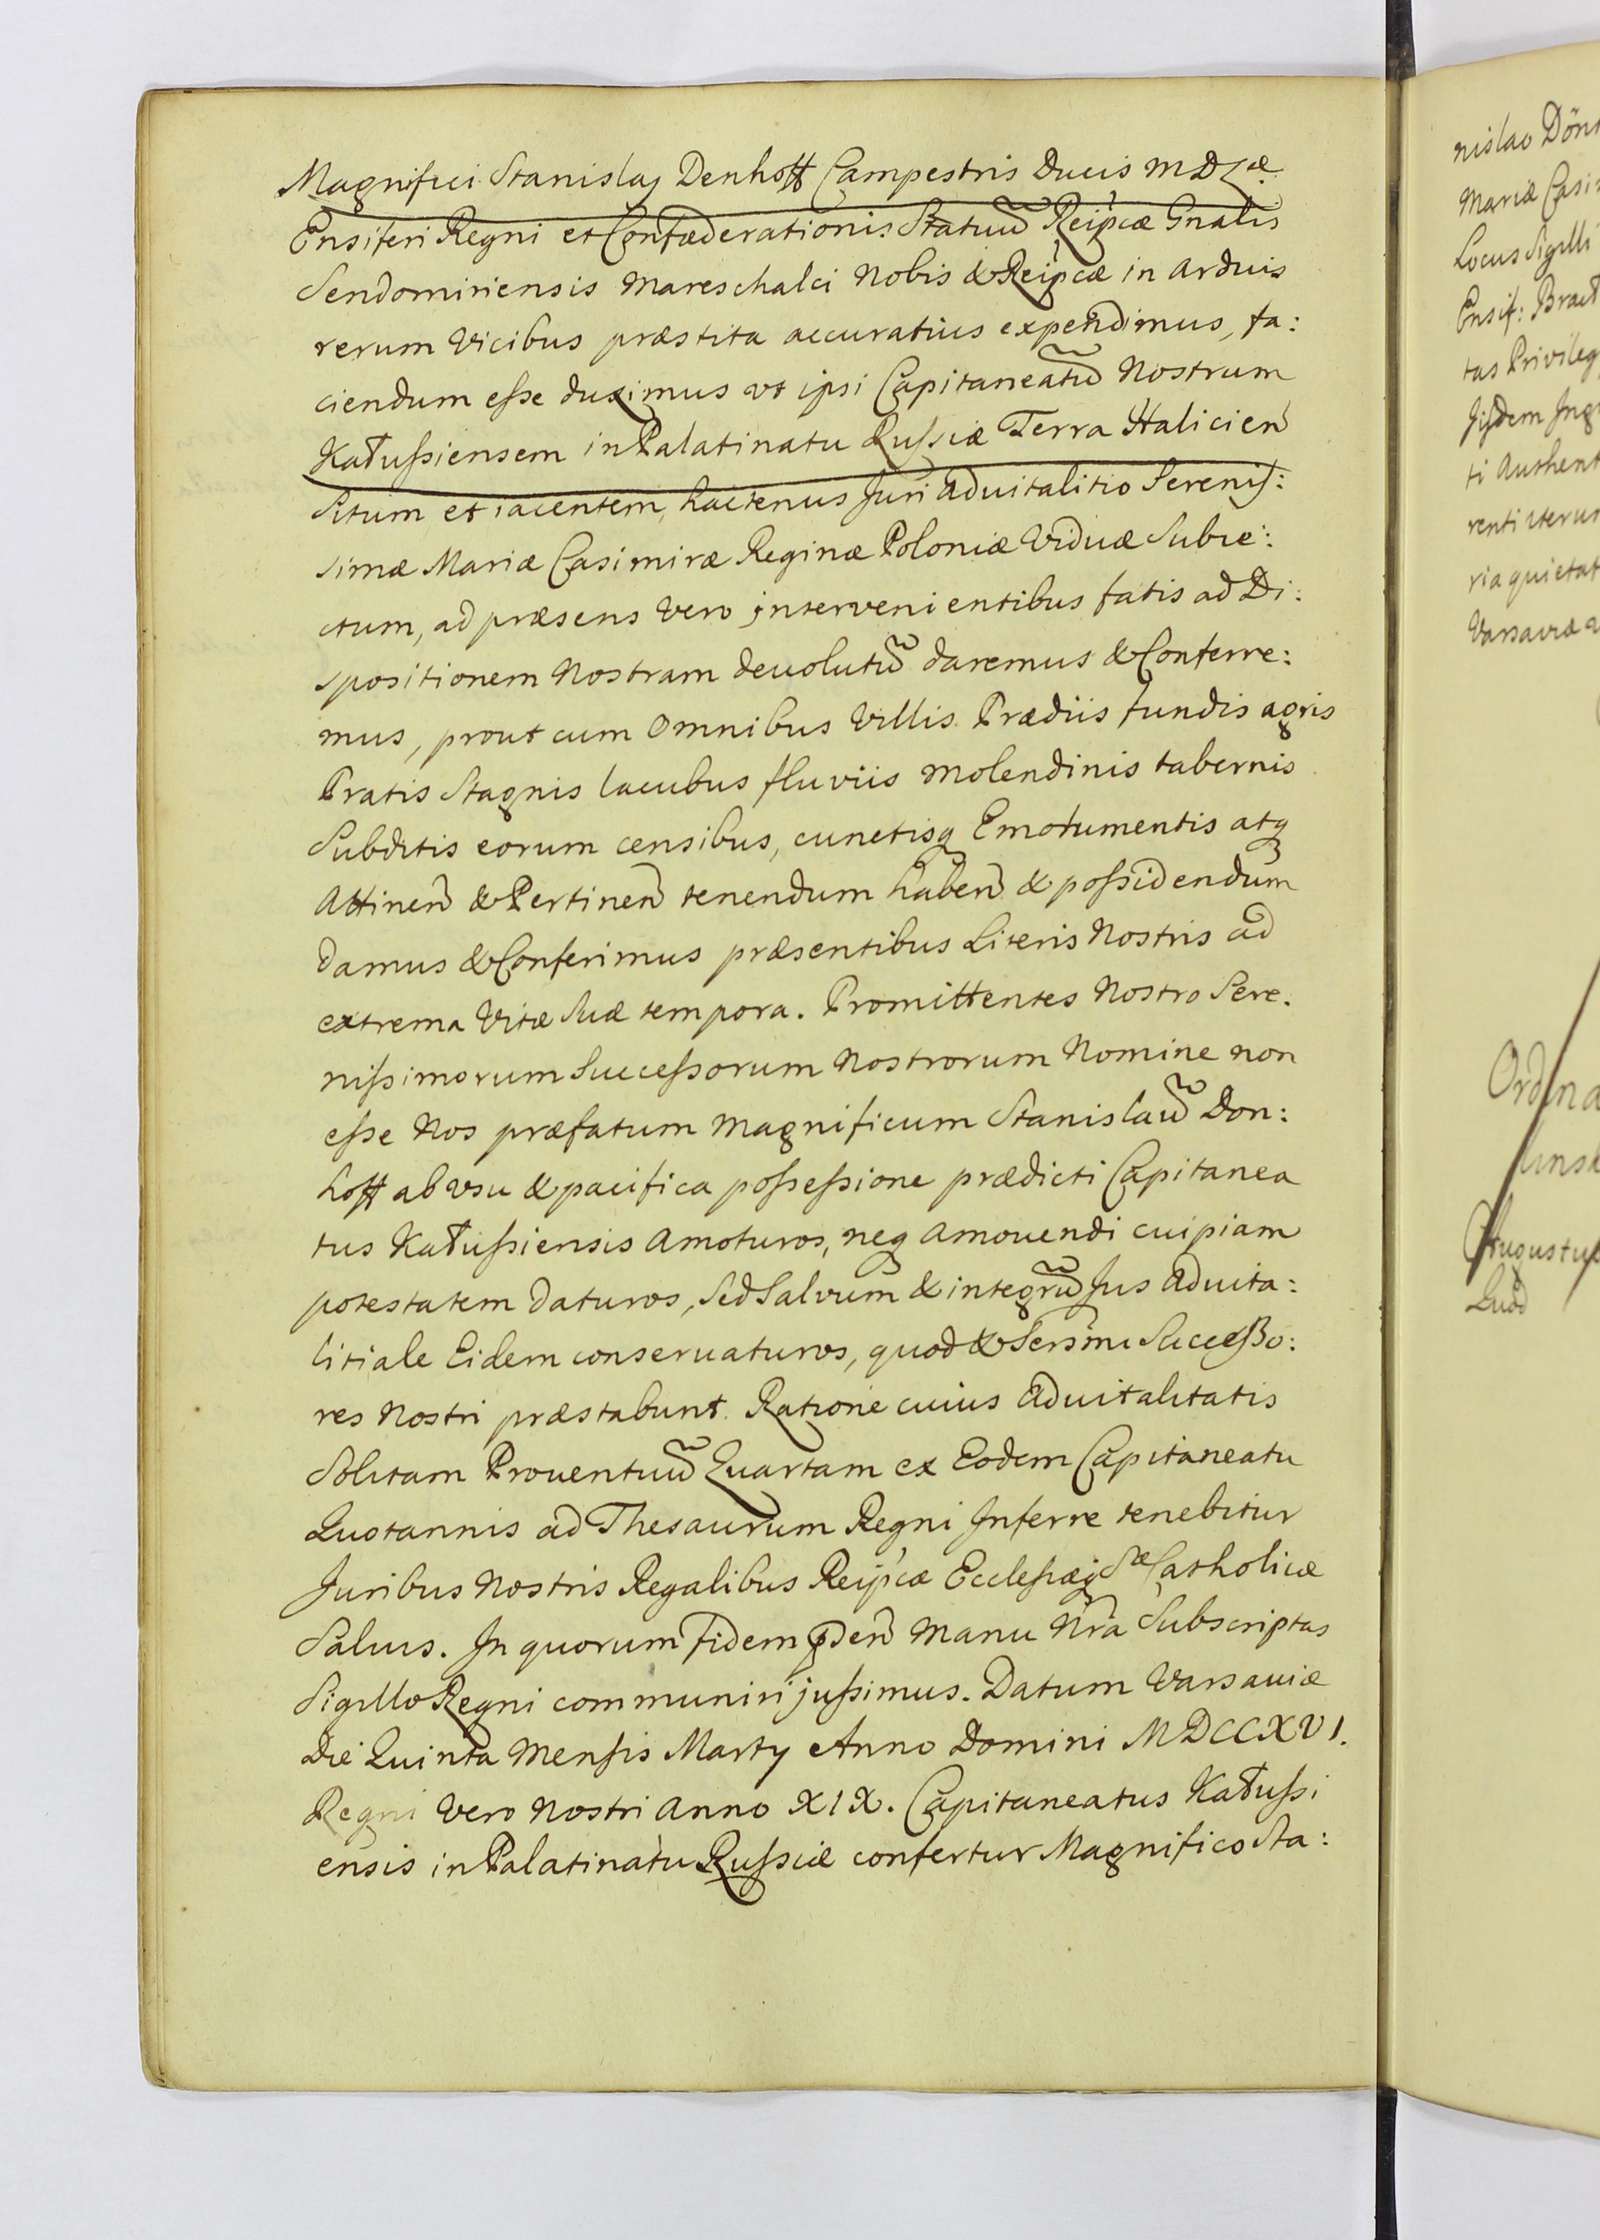 Magnifici Stanislaj Denhoff Campestris Ducis M D L æ
Ensiferi Regni et Confæderationis Statuũ Reipcæ Gnalis
Sendomiriensis Mareschalci Nobis & Reipcæ in Arduis
rerum Vicibus præstita accuratius expendimus, fa:
ciendum esse duximus vt ipsi Capitaneatũ Nostrum
Kałussiensem in Palatinatu Russiæ Terra Halicien
Situm et iacentem, hactenus Juri Aduitalitio Serenis:
simæ Mariæ Casimiræ Reginæ Poloniæ Viduæ Subie:
ctum, ad præsens Vero intervenientibus fatis ad Di:
spositionem Nostram deuolutũ daremus & Conferre:
mus, prout cum Omnibus Villis Prædiis fundis agris
Pratis Stagnis lacubus fluviis Molendinis tabernis
Subditis eorum censibus, cunctisq Emolumentis atq
Attinen & Pertinen tenendum haben & possidendum
damus & Conferimus præsentibus Literis Nostris ad
extrema Vitæ Suæ tempora. Promittentes Nostro Sere:
nissimorum Successorum Nostrorum Nomine non
esse Nos præfatum Magnificum Stanislaũ Don:
hoff ab vsu & pacifica possessione prædicti Capitanea
tus Kałussiensis Amoturos, neq Amouendi cuipiam
potestatem Daturos, Sed Salvum & integrũ Jus Aduita:
litiale Eidem conseruaturos, quod & Sersmi Successo:
res Nostri præstabunt. Ratione cuius Aduitalitatis
Solitam Prouentuũ Quartam ex Eodem Capitaneatu
Quotannis ad Thesaurum Regni Inferre tenebitur
Juribus Nostris Regalibus Reipcæ Ecclesiæq Sæ Catholicæ
Saluis. In quorum fidem pden Manu Nra Subscriptas
Sigillo Regni communiri jussimus. Datum Varsauiæ
Die Quinta Mensis Marty Anno Domini MDCCXVI.
Regni Vero Nostri Anno XIX. Capitaneatus Kałussi
ensis in Palatinatu Russiæ confertur Magnifico Sta:
nislao Dön
Mariæ Casi
Locus Sigilli
Ensif: Bract
tas Privileg
ti Authent
ria quietat
Varsaviæ
Ordina
Augustus